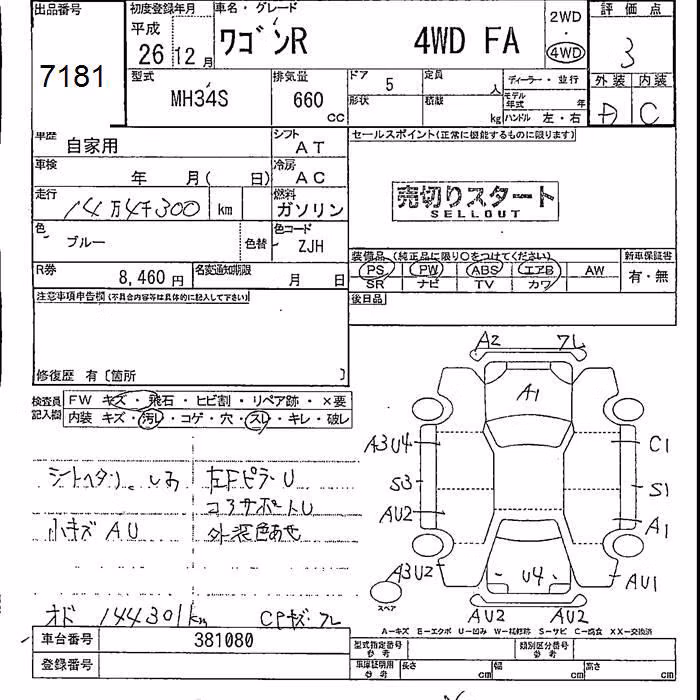 出品番号
7181
初度登録年月
平成
26年 12月
車名・グレード
ワゴンR 4WD FA
2WD
・
4WD
評価点
3
外装 内装
A C
型式
MH34S
排気量
660
cc
ドア
5
定員
人
形状
積載
kg
ディーラー・並行
モデル年式 年
ハンドル 左・右
車歴
自家用
シフト
AT
車検
年 月( 日)
冷房
AC
走行
14万4千300 km
燃料
ガソリン
色
ブルー
色替
色コード
ZJH
R券
8,460 円
名変通知期限
月 日
セールスポイント(正常に機能するものに限ります)
売切りスタート
SELLOUT
装備品 (純正品に限り○をつけてください)
PS PW ABS エアB AW
SR ナビ TV カワ
新車保証書
有・無
後日品
注意事項申告欄(不具合内容等は具体的に記入して下さい)
修復歴 有〔箇所 〕
検査員記入欄
FW キズ・飛石・ヒビ割・リペア跡・×要
内装 キズ・汚レ・コゲ・穴・スレ・キレ・破レ
シートヘタリ、しみ
左Fピラー U
コアサポートU
小キズ AU
外装色あせ
オド 144301km
CPキズ・フレ
A2 フレ
A1
A3U4 C1
S3 S1
AU2 A1
A3U2 U4 AU1
スペア
AU2 AU2
A-キズ E-エクボ U-凹み W-補修跡 S-サビ C-腐食 XX-交換済
車台番号
381080
登録番号
型式指定番号
参考
類別区分番号
参考
車庫証明用
参考
長さ cm
幅 cm
高さ cm